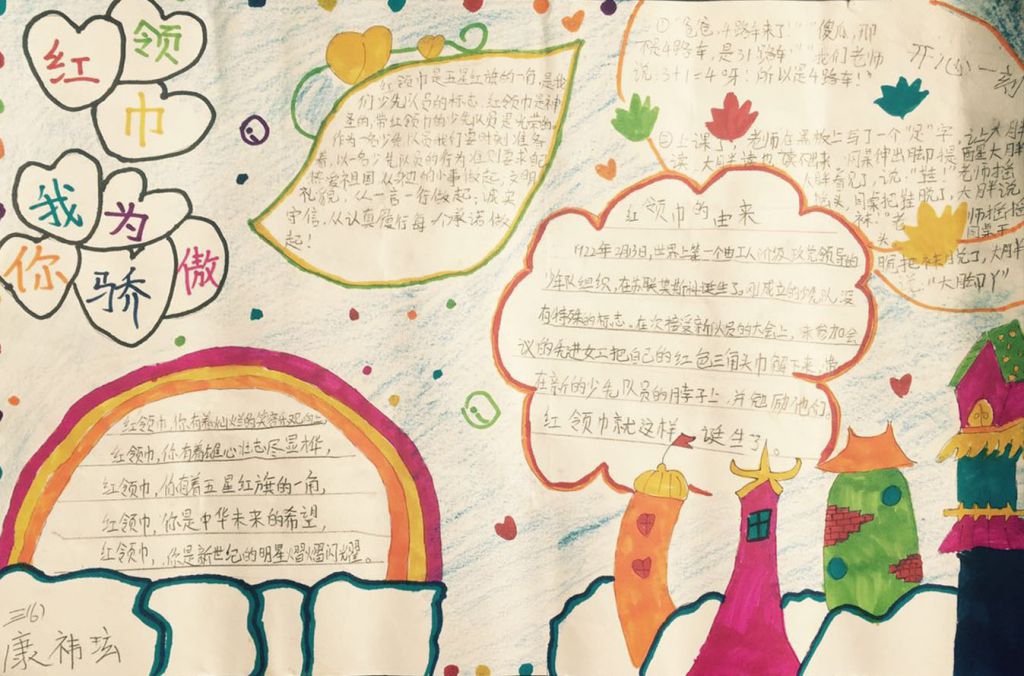 红领
巾
我为
你骄傲
红领巾是五星红旗的一角,是我
们少先队员的标志,红领巾是神
圣的,带红领巾的少先队员是光荣的。
作为一名少先队员我们要时刻准备
着,以一名少先队员的行为准则要求自己
热爱祖国从身边的小事做起,文明
礼貌,从一言一行做起,诚实
守信,从认真履行每一个承诺做
起!
开心一刻
①"爸爸,4路车来了!""傻瓜,那
不是4路车,是31路车""我们老师
说:3+1=4呀!所以是4路车!"
②上课了,老师在黑板上写了一个"足"字,让大月半
读,大月半
"大脚丫"
红领巾的由来
1922年2月13日,世界上第一个由工人阶级政党领导的
少年队组织,在苏联莫斯科诞生了。刚成立的少先队没
有特殊的标志。在次接受新队员的大会上,来参加会
议的先进女工把自己的红色三角头巾解下来,
在新的少先队员的脖子上,并勉励他们。
红领巾就这样诞生了。
红领巾,你有着灿烂的笑容
红领巾,你有着雄心壮志尽显桦,
红领巾,你有着五星红旗的一角,
红领巾,你是中华未来的希望,
红领巾,你是新世纪的明星熠熠闪光耀。
三(6)
康祎玹